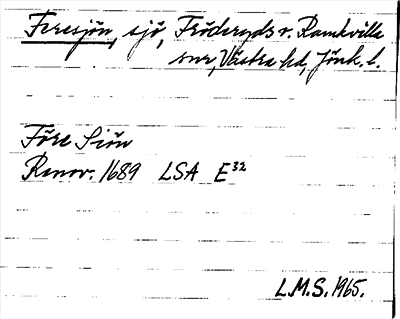 Feresjön, sjö, Fröderyds o. Ramkvilla
snr, Västra hd, Jönk. l.
Före Siön
Renov. 1689 LSA E³²
L.M.S. 1965.